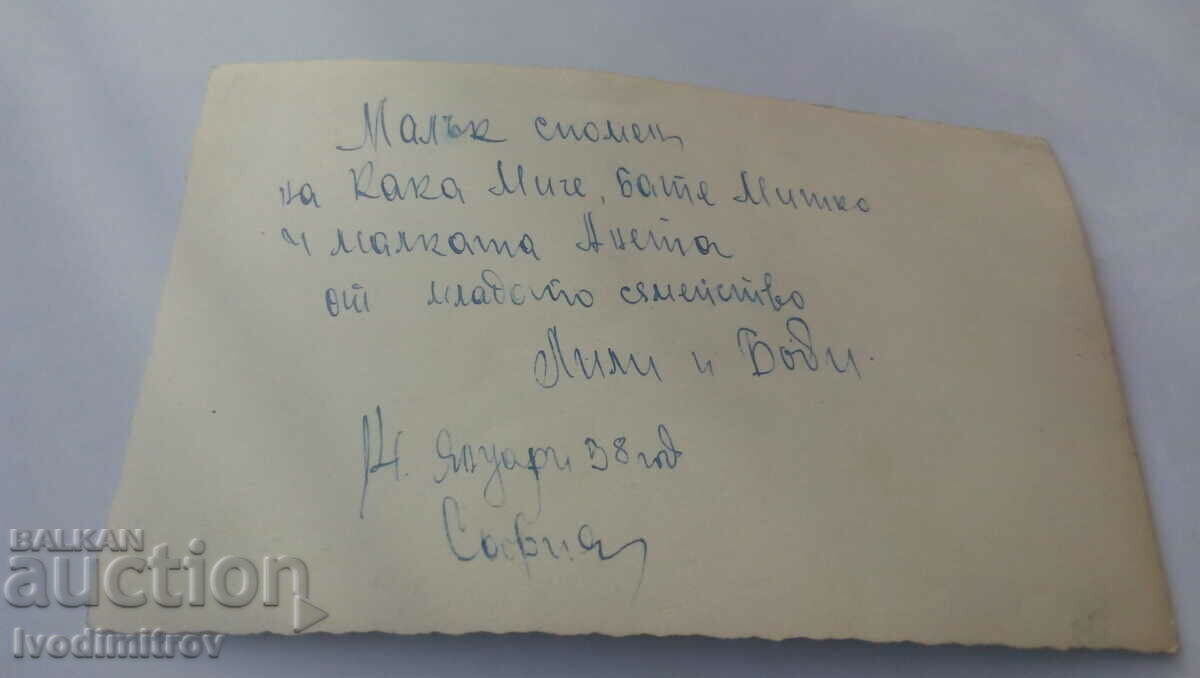 Малък спомен
на Кака Миче, Бате Митко
и малката Анета
от младото сямейство
Лили и Боди.
14. Януари 38 год
София
BALKAN
auction
Ivodimitrov